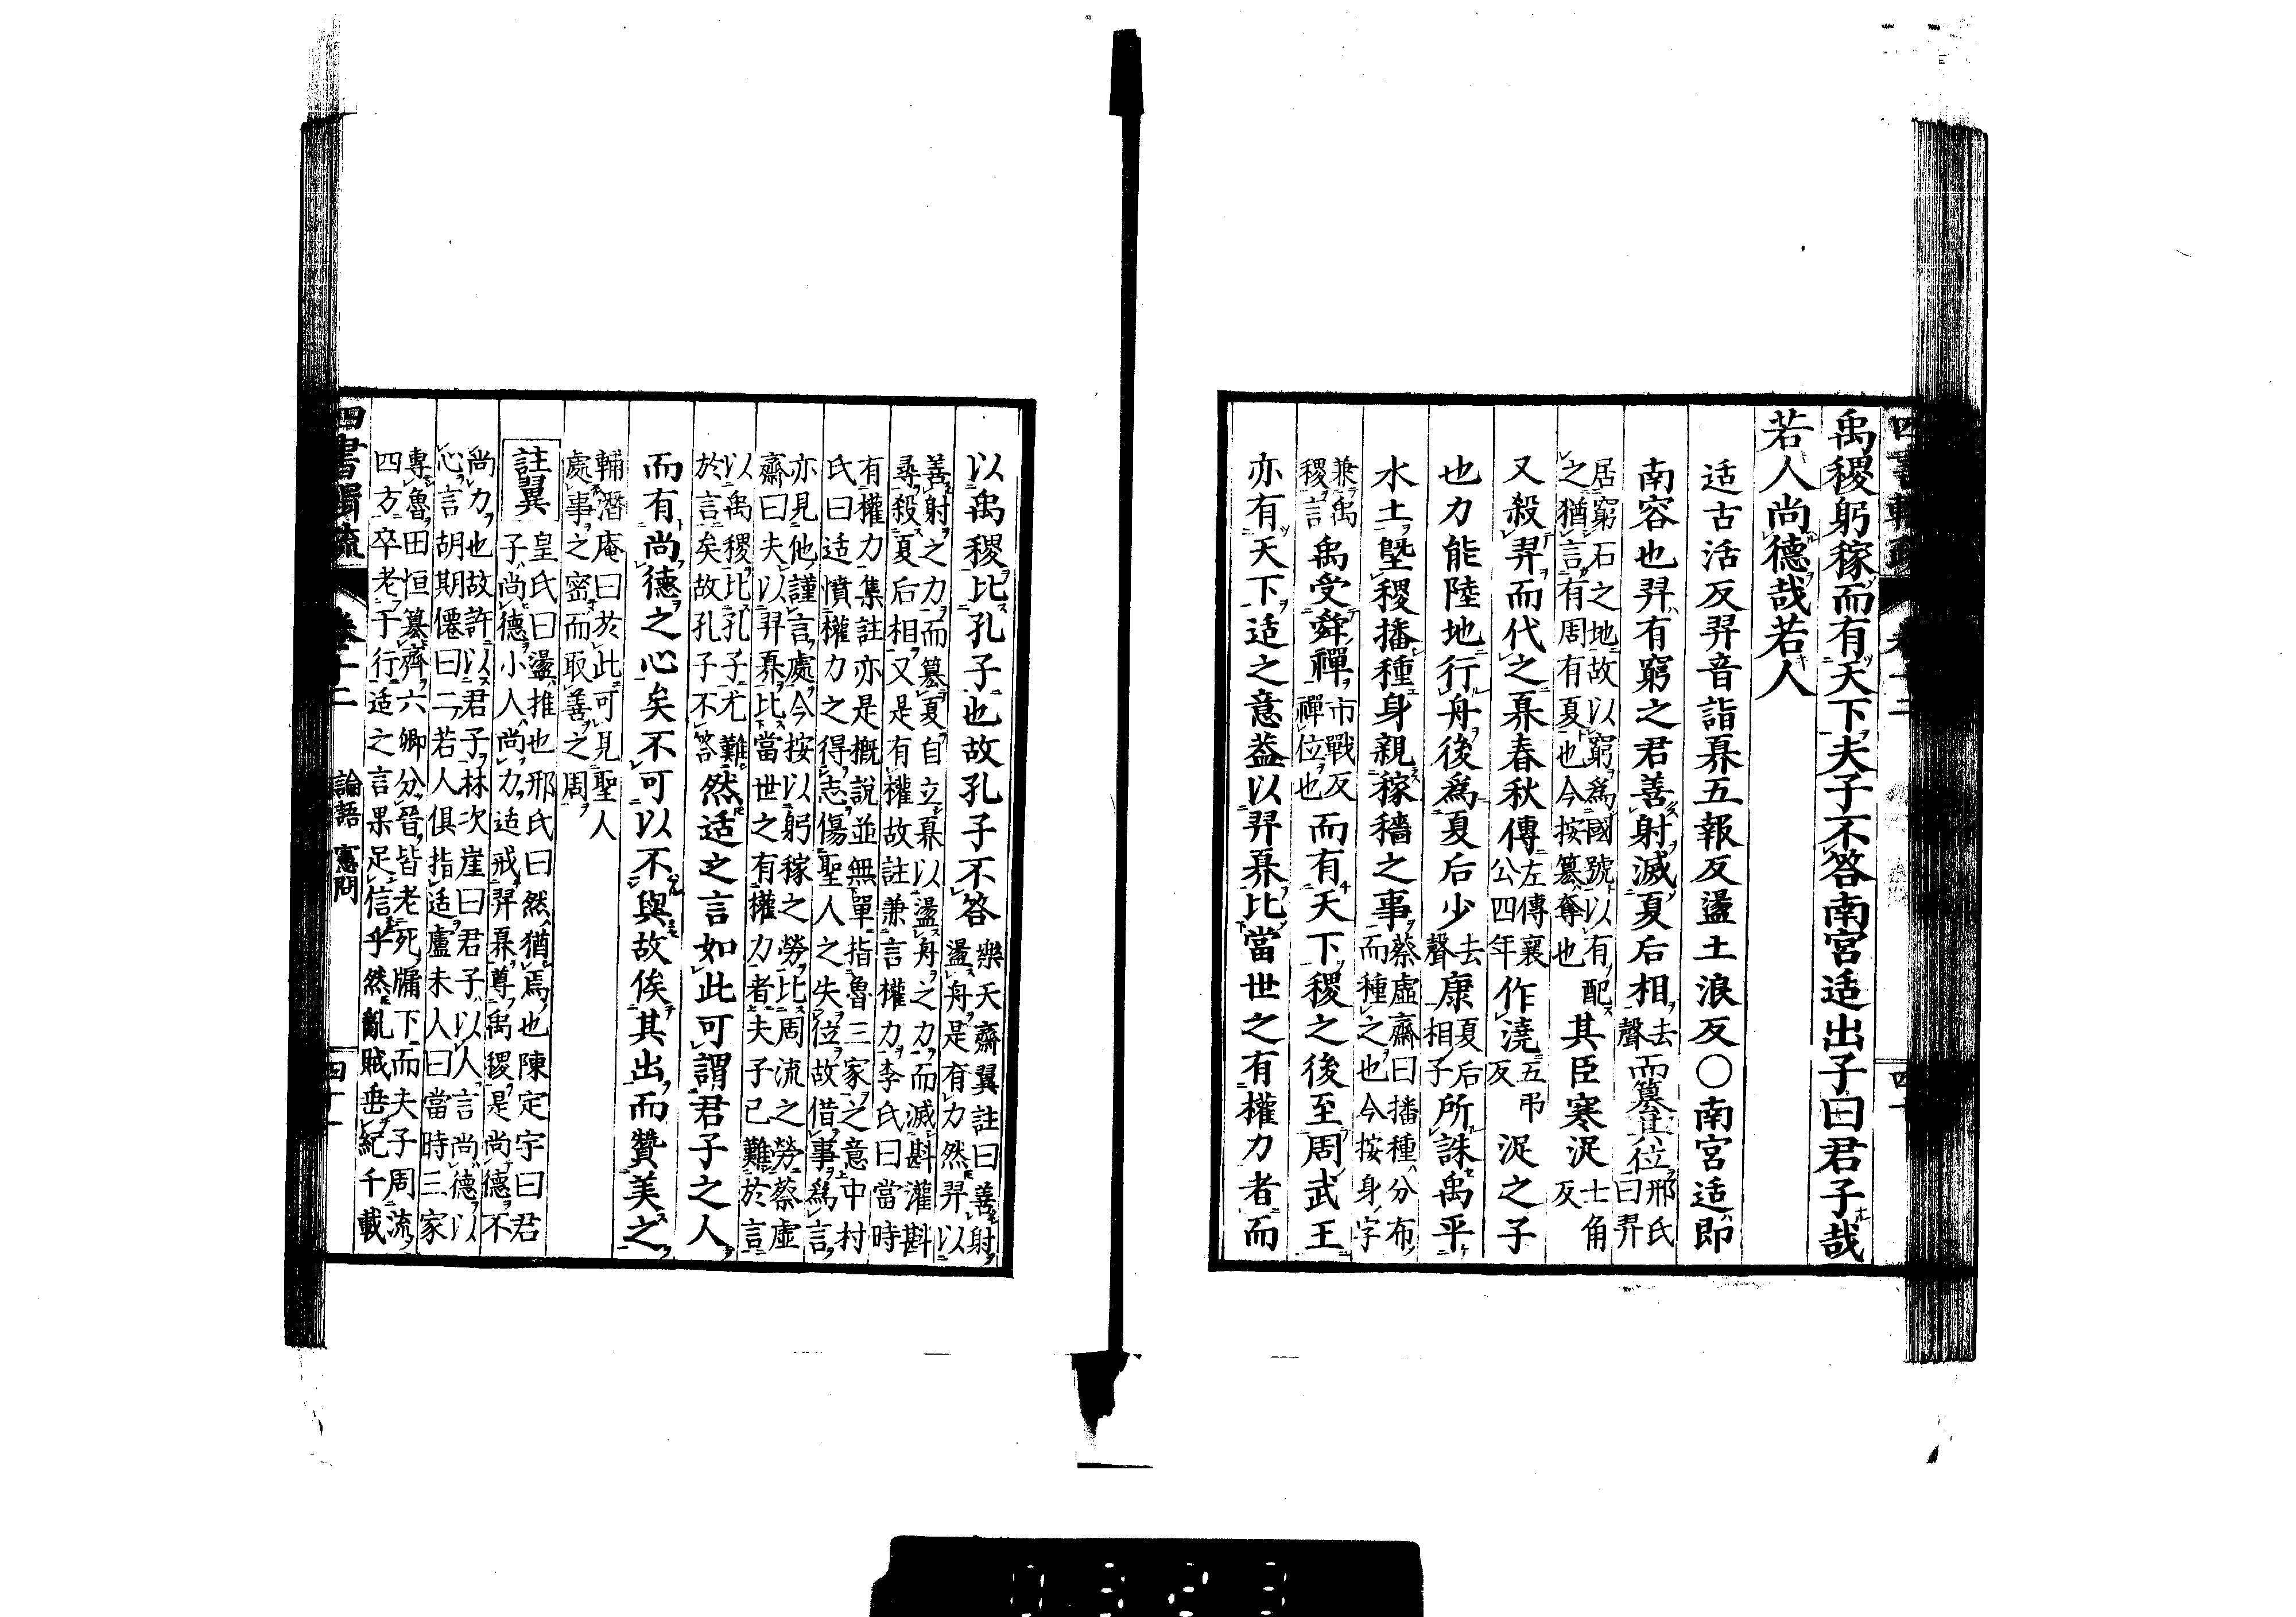 禹稷躬稼而有天下夫子不答南宮适出子曰君子哉
若人尚德哉若人
适古活反羿音詣奡五報反盪土浪反〇南宮适即
南容也羿有窮之君善射滅夏后相去聲而簒其位邢氏曰羿
居窮石之地故以窮爲國號以有配之猶言有周有夏也今按簒奪也其臣寒浞士角反
又殺羿而代之奡春秋傳左傳襄公四年作澆五弔反浞之子
也力能陸地行舟後爲夏后少去聲康夏后相子所誅禹平
水土曁稷播種身親稼穡之事蔡虛齋曰播種分布而種之也今按身字
兼禹稷言禹受舜禪市戰反禪位也而有天下稷之後至周武王
亦有天下适之意葢以羿奡比當世之有權力者而
以禹稷比孔子也故孔子不答樂天齋翼註曰善射盪舟是有力然羿以
善射之力而簒夏自立奡以盪舟之力而滅斟灌斟
尋殺夏后相又是有權故註兼言權力李氏曰當時
有權力集註亦是槪說並無單指魯三家之意中村
氏曰适憤權力之得志傷聖人之失位故借事爲言
亦見他謹言處今按以躬稼之勞比周流之勞蔡虛
齋曰夫以羿奡比當世之有權力者夫子已難於言
以禹稷比孔子尤難於言矣故孔子不答然适之言如此可謂君子之人
而有尚德之心矣不可以不與故俟其出而贊美之
輔潛庵曰於此可見聖人
處事之密而取善之周
註翼皇氏曰盪推也邢氏曰然猶焉也陳定宇曰君
子尚德小人尚力适戒羿奡尊禹稷是尚德不
尚力也故許以君子林次崖曰君子以人言尚德以
心言胡期僊曰二若人俱指适盧未人曰當時三家
專魯田恒簒齊六卿分晉皆老死牖下而夫子周流
四方卒老于行适之言果足信乎然亂賊垂紀千載
四書輯疏 卷十二 論語 憲問 四十一